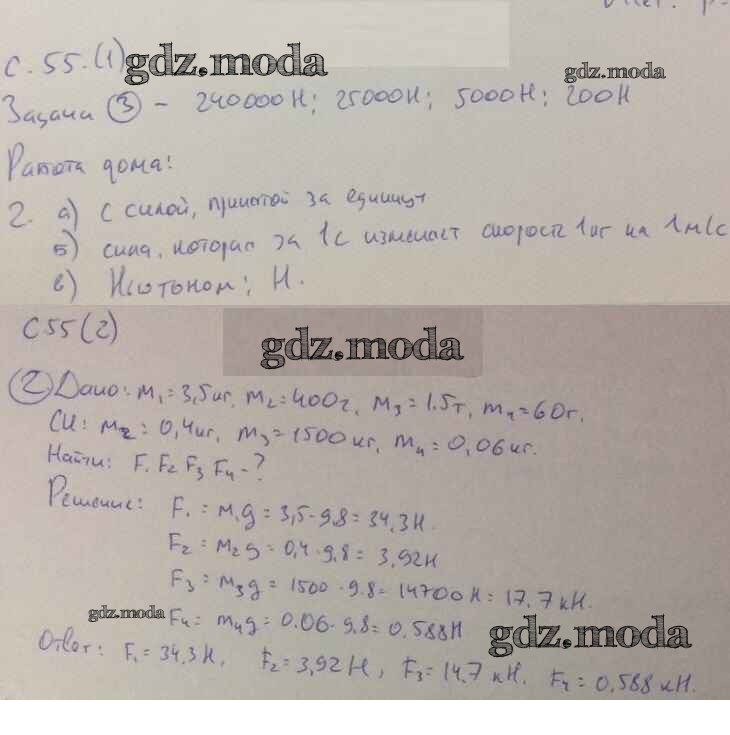 с. 55.(1) gdz.moda
gdz.moda
Задача ③ - 240000Н; 25000Н; 5000Н; 200Н
Работа дома:
2. а) с силой, принятой за единицу
б) сила, которая за 1с изменяет скорость 1кг на 1м/с
в) Ньютоном; Н.
С55(2)
gdz.moda
② Дано: m₁=3,5кг, m₂=400г, m₃=1.5т, m₄=60г.
СИ: m₂=0,4кг, m₃=1500кг, m₄=0,06кг.
Найти: F₁ F₂ F₃ F₄-?
Решение: F₁=m₁g=3,5·9,8=34,3Н
F₂=m₂g=0,4·9,8=3,92Н
F₃=m₃g=1500·9.8=14700Н=17.7кН.
gdz.moda F₄=m₄g=0.06·9,8=0,588Н
gdz.moda
Ответ: F₁=34,3Н, F₂=3,92Н, F₃=14,7 кН. F₄=0,588 кН.